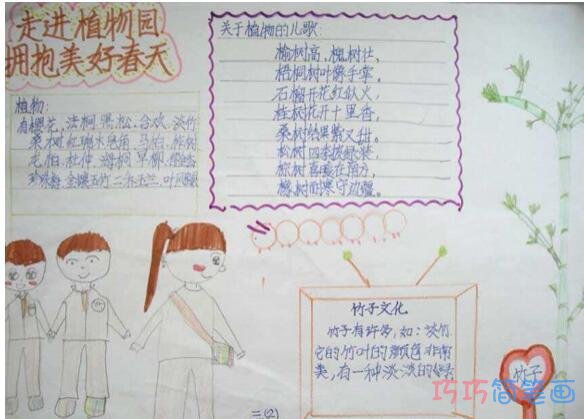 走进植物园
拥抱美好春天
植物:
有樱花,法桐,黑松,合欢,淡竹
龙柏,杜仲,海桐
珍珠梅,金镶玉竹,二乔玉兰
关于植物的儿歌:
榆树高,槐树壮,
梧桐树叶像手掌。
石榴开花红似火,
桂树花开十里香,
桑树结果紫又甜。
松树四季披绿装,
棕树喜暖在南方,
橡树耐寒守边疆。
竹子文化
竹子有许多,如:淡竹
它的竹叶的颜色非常
美,有一种淡淡的
竹子
三(2)
巧巧简笔画